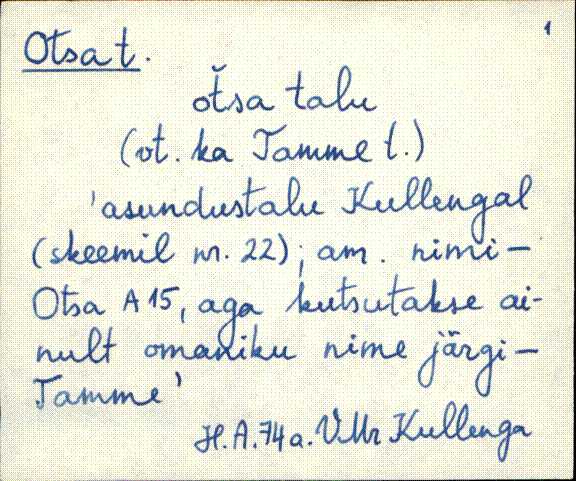 1
Otsa t.
ŏtsa talu
(vt. ka Tamme t.)
'asundustalu Kullengal
(skeemil nr. 22); am. nimi –
Otsa A 15, aga kutsutakse ai-
nult omaniku nime järgi –
Tamme'
H.A. 74 a. VMr Kullenga